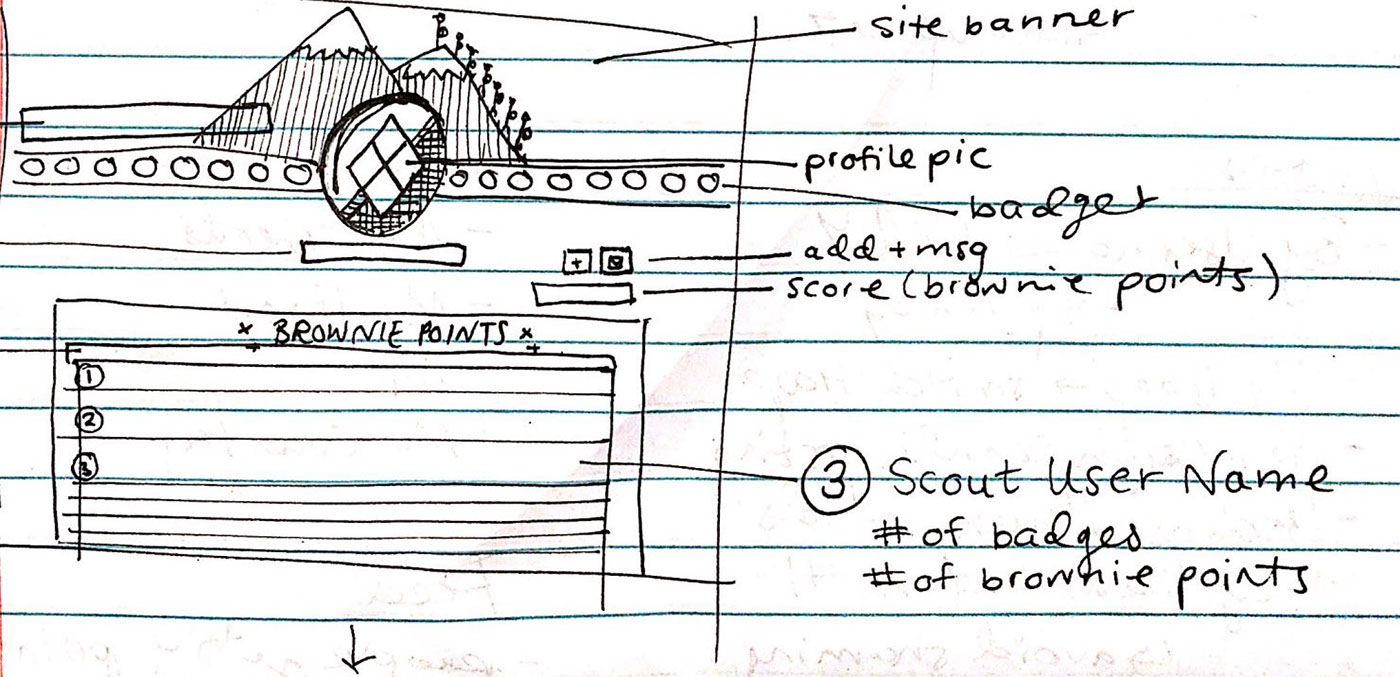 site banner
profile pic
badges
add + msg
score (brownie points)
* BROWNIE POINTS *
1
2
3
③ Scout User Name
# of badges
# of brownie points